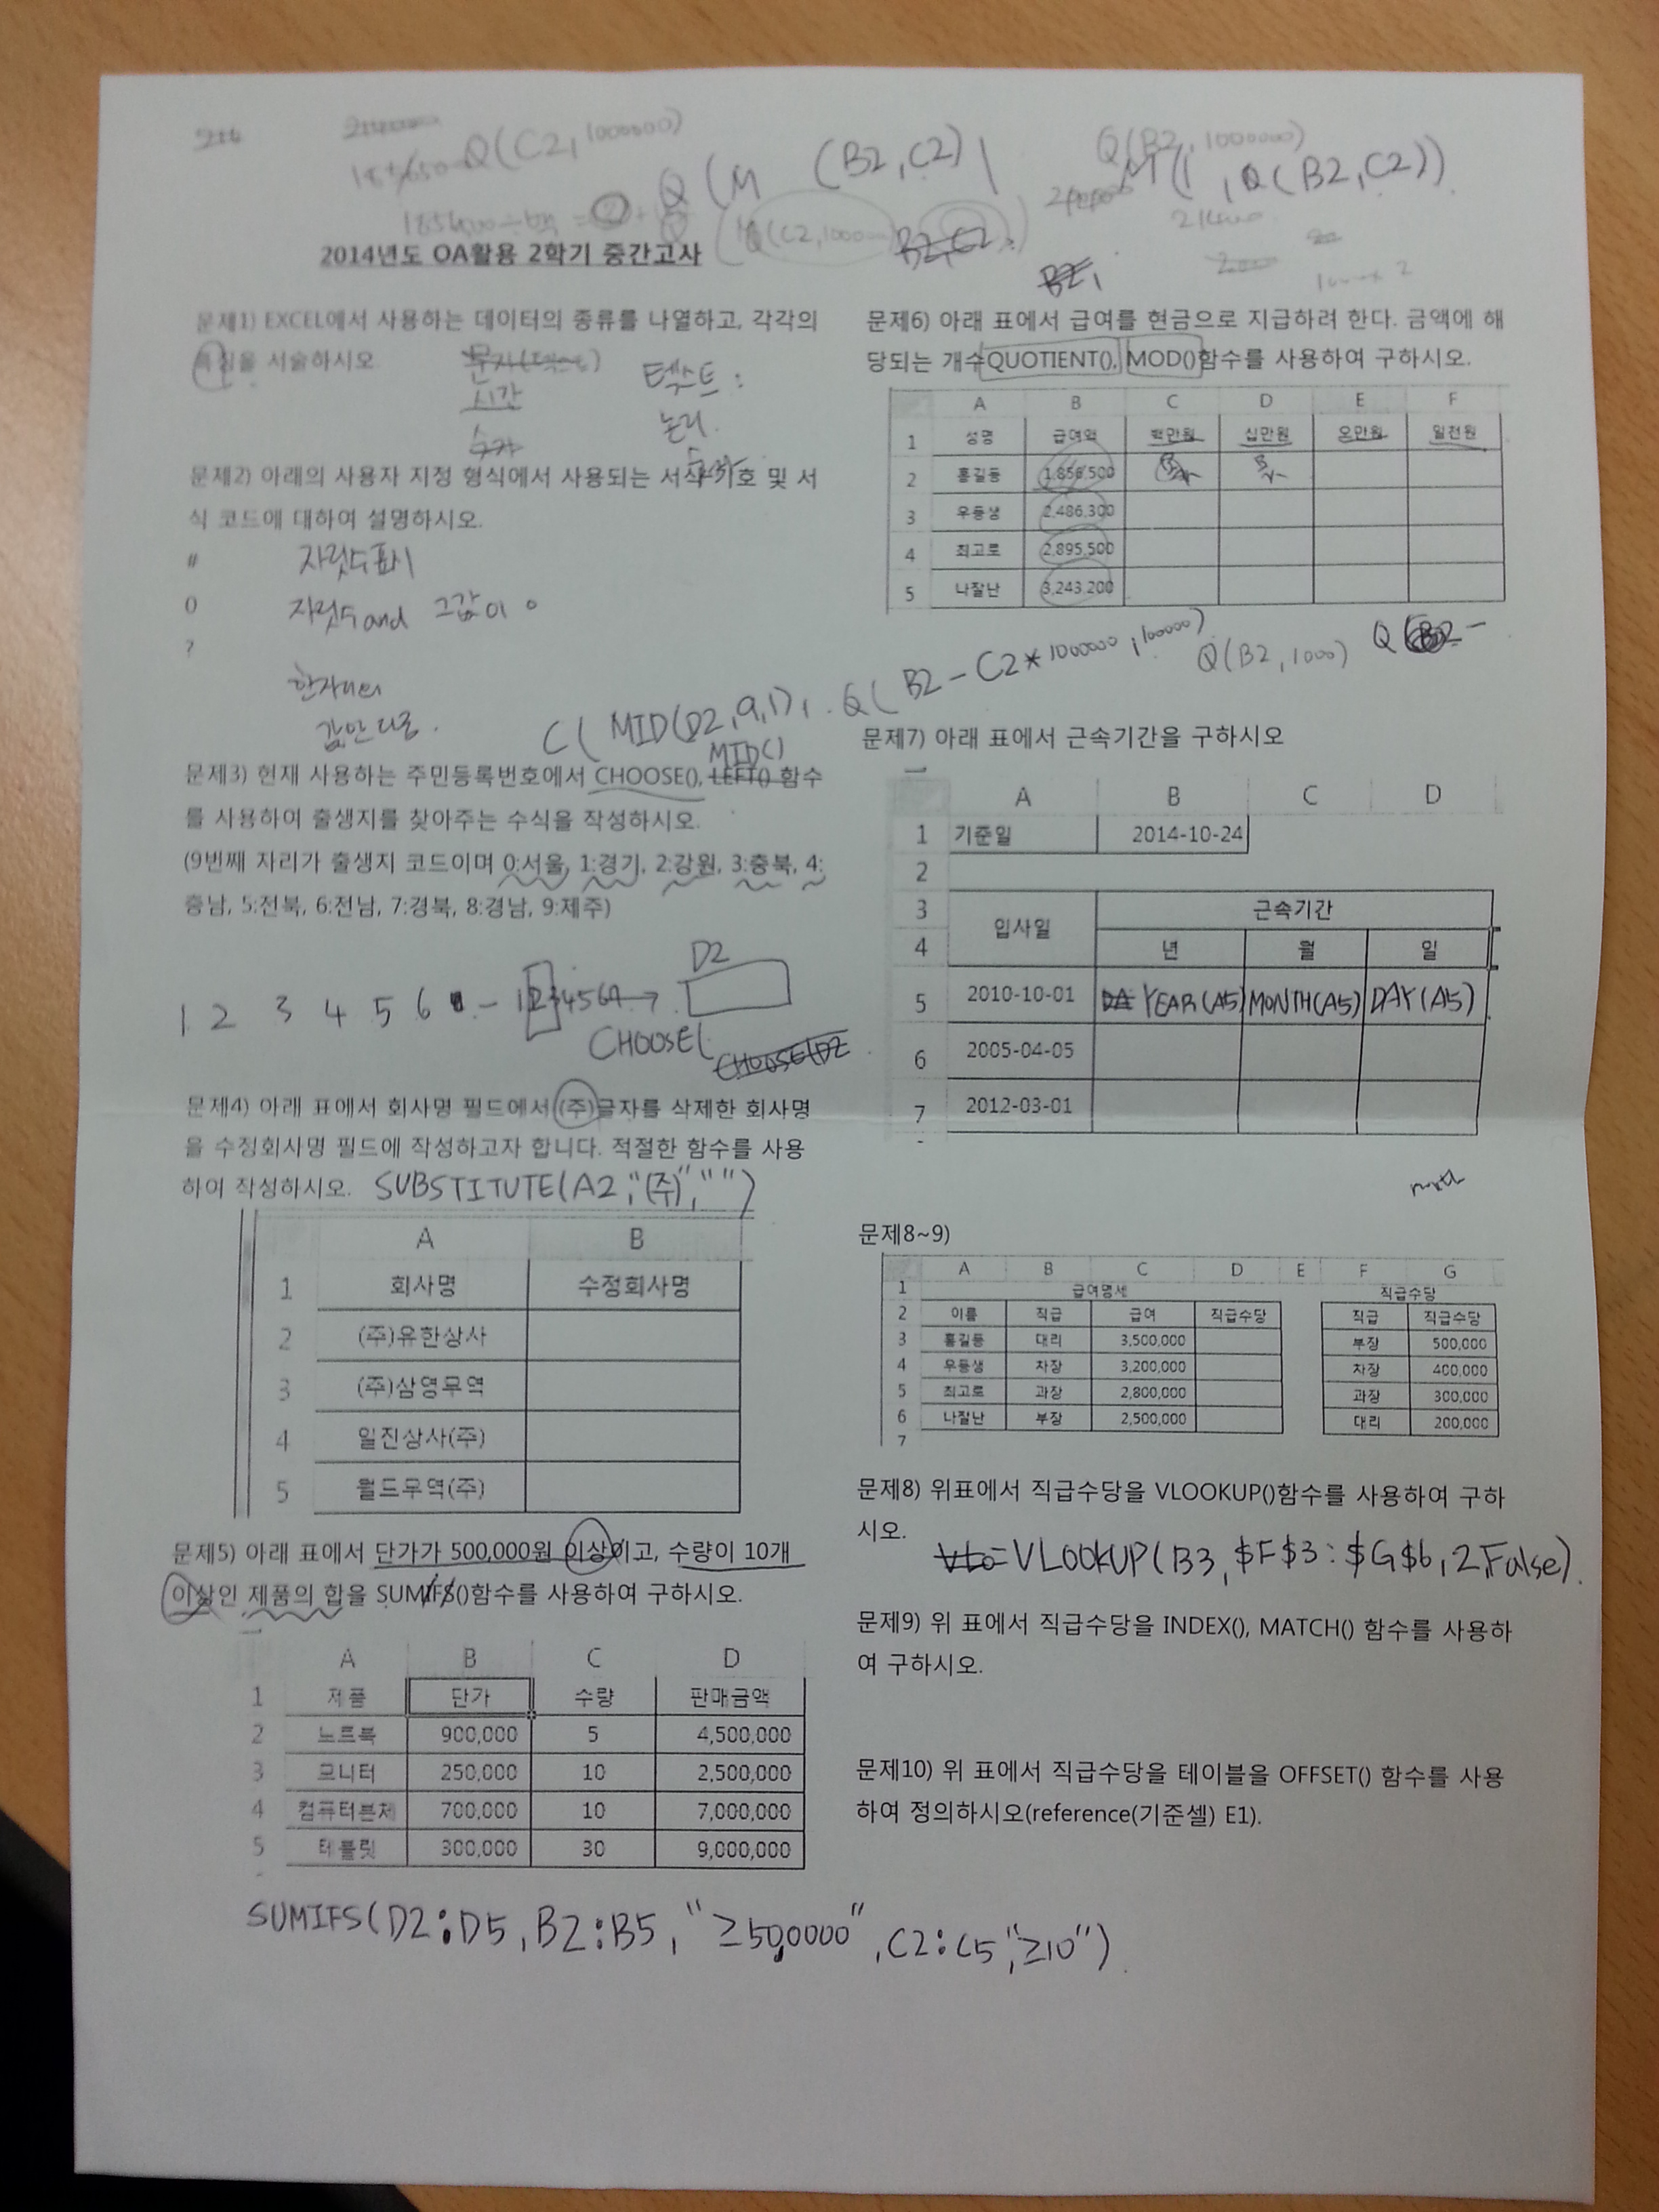 Q(C2,1000000)
Q(B2,1000000)
(B2,C2)
Q(B2,C2))
2014년도 OA활용 2학기 중간고사
문제1) EXCEL에서 사용하는 데이터의 종류를 나열하고, 각각의
특징을 서술하시오.
시간
숫자
텍스트:
논리
문제2) 아래의 사용자 지정 형식에서 사용되는 서식기호 및 서
식 코드에 대하여 설명하시오.
# 자릿수표시
0 자릿수and 그값이 0
?
C( MID(D2,9,1),
MID()
문제3) 현재 사용하는 주민등록번호에서 CHOOSE(), LEFT() 함수
를 사용하여 출생지를 찾아주는 수식을 작성하시오.
(9번째 자리가 출생지 코드이며 0:서울, 1:경기, 2:강원, 3:충북, 4:
충남, 5:전북, 6:전남, 7:경북, 8:경남, 9:제주)
D2
1 2 3 4 5 6 - 1234567 →
CHOOSE(
CHOOSE(D2
문제4) 아래 표에서 회사명 필드에서 (주)글자를 삭제한 회사명
을 수정회사명 필드에 작성하고자 합니다. 적절한 함수를 사용
하여 작성하시오. SUBSTITUTE(A2,"(주)","")
A B
1 회사명 수정회사명
2 (주)유한상사
3 (주)삼영무역
4 일진상사(주)
5 월드무역(주)
문제5) 아래 표에서 단가가 500,000원 이상이고, 수량이 10개
이상인 제품의 합을 SUMIFS()함수를 사용하여 구하시오.
A B C D
1 제품 단가 수량 판매금액
2 노트북 900,000 5 4,500,000
3 모니터 250,000 10 2,500,000
4 컴퓨터본체 700,000 10 7,000,000
5 태블릿 300,000 30 9,000,000
SUMIFS(D2:D5,B2:B5,"≥500000",C2:C5,"≥10")
문제6) 아래 표에서 급여를 현금으로 지급하려 한다. 금액에 해
당되는 개수QUOTIENT(), MOD()함수를 사용하여 구하시오.
A B C D E F
1 성명 급여액 백만원 십만원 오만원 일천원
2 홍길동 1,856,500
3 우등생 2,486,300
4 최고로 2,895,500
5 나잘난 3,243,200
Q(B2-C2*1000000,100000)
Q(B2,1000)
문제7) 아래 표에서 근속기간을 구하시오
A B C D
1 기준일 2014-10-24
2
3 입사일 근속기간
4 년 월 일
5 2010-10-01 YEAR(A5) MONTH(A5) DAY(A5)
6 2005-04-05
7 2012-03-01
문제8~9)
A B C D E F G
1 급여명세 직급수당
2 이름 직급 급여 직급수당 직급 직급수당
3 홍길동 대리 3,500,000 부장 500,000
4 우등생 차장 3,200,000 차장 400,000
5 최고로 과장 2,800,000 과장 300,000
6 나잘난 부장 2,500,000 대리 200,000
7
문제8) 위표에서 직급수당을 VLOOKUP()함수를 사용하여 구하
시오.
=VLOOKUP(B3,$F$3:$G$6,2,False)
문제9) 위 표에서 직급수당을 INDEX(), MATCH() 함수를 사용하
여 구하시오.
문제10) 위 표에서 직급수당을 테이블을 OFFSET() 함수를 사용
하여 정의하시오(reference(기준셀) E1).